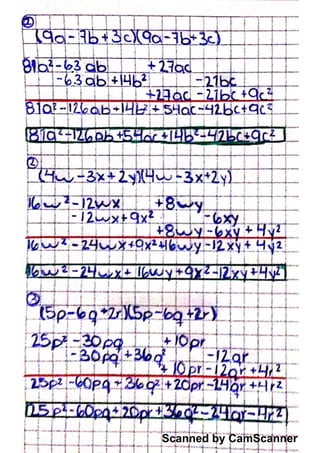 ①
(9a-7b+3c)(9a-7b+3c)
81a²-63ab +27ac
-63ab +14b² -21bc
+27ac -21bc +9c²
81a²-126ab+14b²+54ac-42bc+9c²
81a²-126ab+54ac+14b²-42bc+9c²
②
(4w-3x+2y)(4w-3x+2y)
16w²-12wx +8wy
-12wx+9x² -6xy
+8wy-6xy+4y²
16w²-24wx+9x²+16wy-12xy+4y²
16w²-24wx+16wy+9x²-12xy+4y²
③
(5p-6q+2r)(5p-6q+2r)
25p²-30pq +10pr
-30pq+36q² -12qr
+10pr-12qr+4r²
25p²-60pq+36q²+20pr-24qr+4r²
25p²-60pq+20pr+36q²-24qr-4r²
Scanned by CamScanner